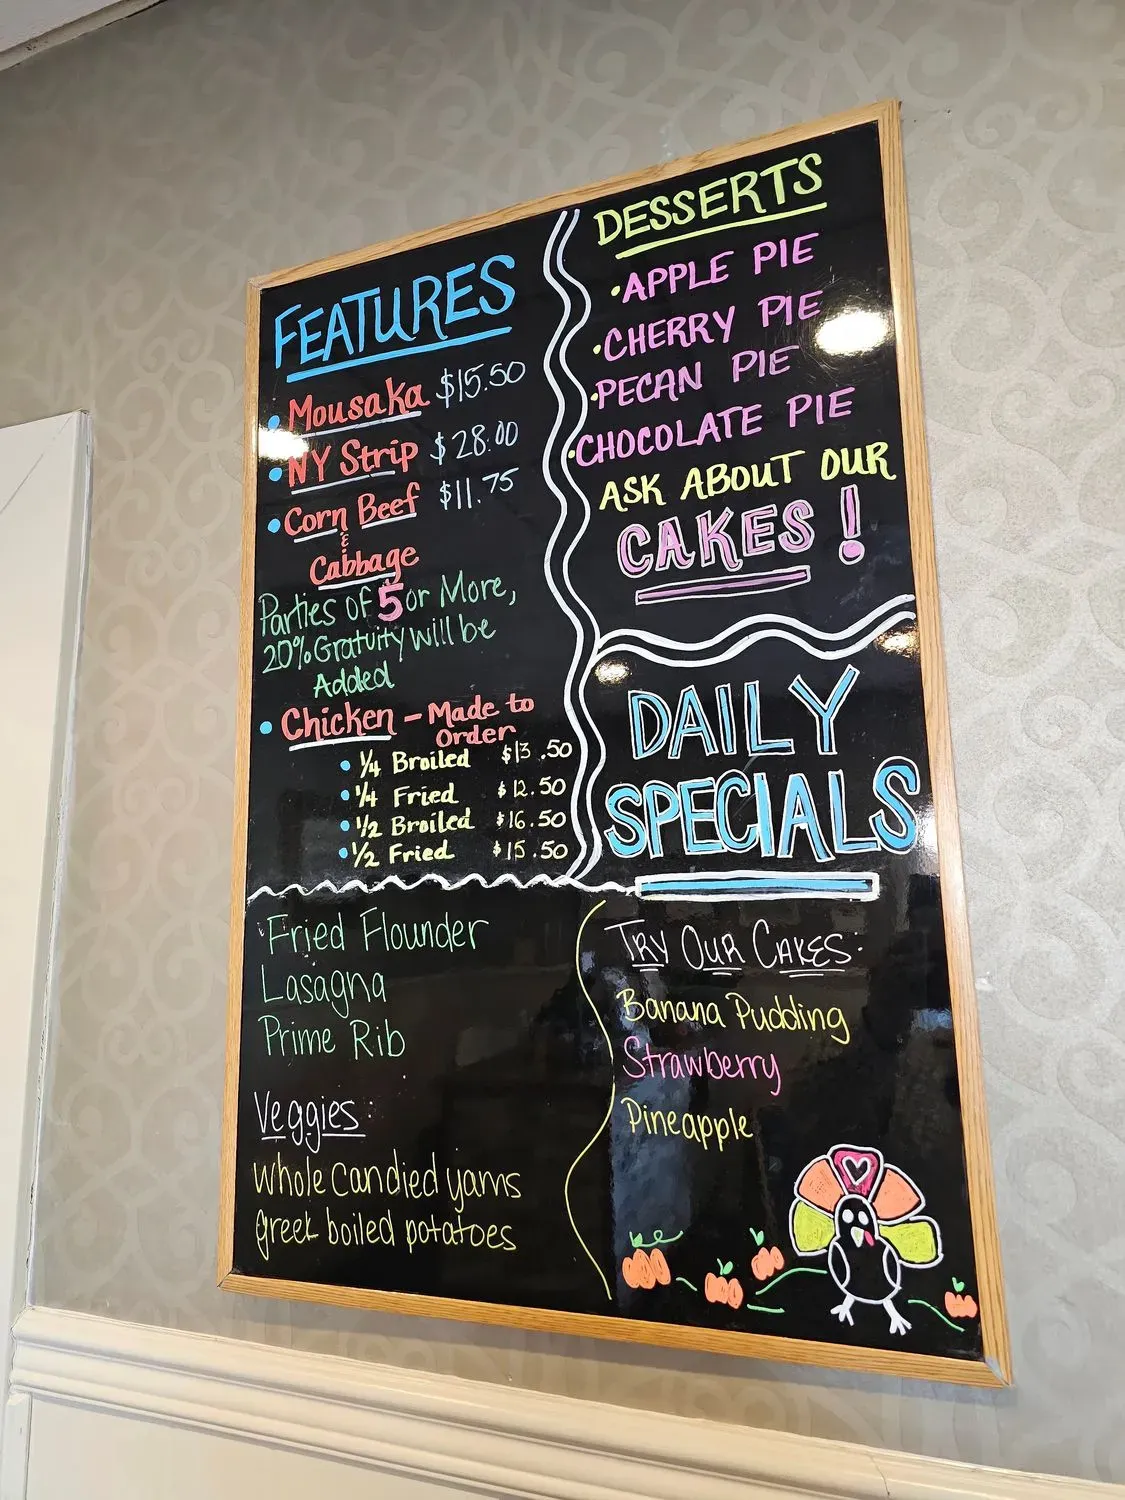 FEATURES
• Mousaka $15.50
• NY Strip $28.00
• Corn Beef $11.75
&
Cabbage
Parties of 5 or More,
20% Gratuity will be
Added
• Chicken - Made to
Order
• 1/4 Broiled $13.50
• 1/4 Fried $12.50
• 1/2 Broiled $16.50
• 1/2 Fried $15.50
DESSERTS
• APPLE PIE
• CHERRY PIE
• PECAN PIE
• CHOCOLATE PIE
ASK ABOUT OUR
CAKES!
DAILY
SPECIALS
Fried Flounder
Lasagna
Prime Rib
Veggies:
Whole Candied yams
Greek boiled potatoes
TRY OUR CAKES:
Banana Pudding
Strawberry
Pineapple